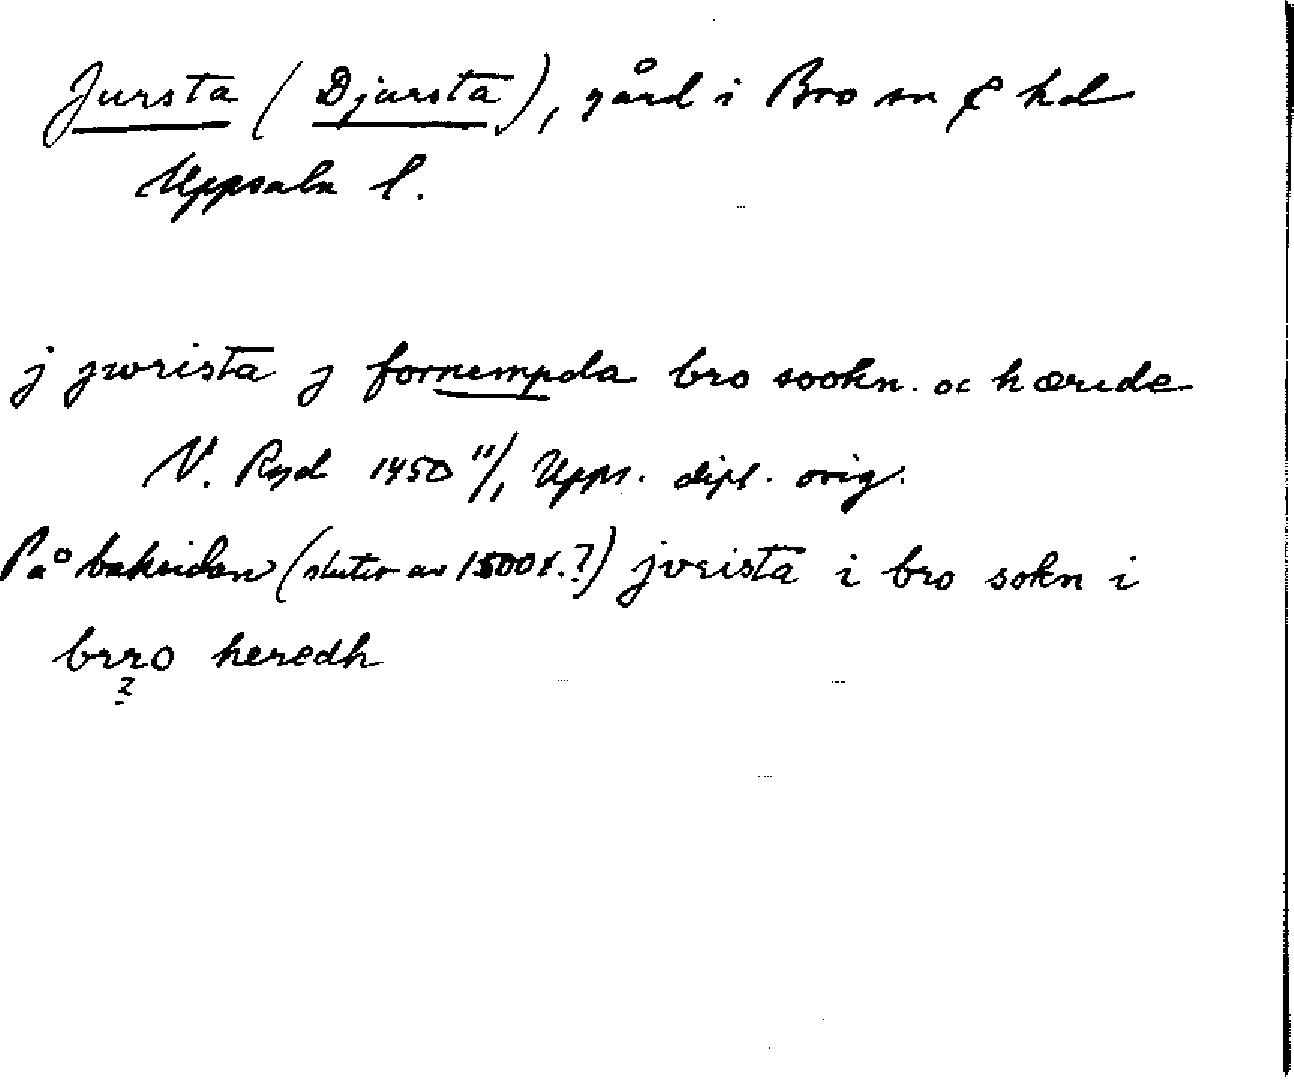 Jursta (Djursta), gård i Bro sn & hd
Uppsala l.
j jwrista j fornempda bro sookn. oc hærede
V. Ryd 1450 11/1 Upps. dipl. orig.
På baksidan (slutet av 1500t.?) jvrista i bro sokn i
brro heredh
?